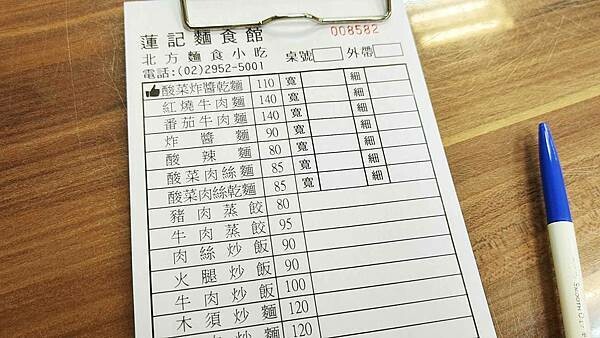 蓮記麵食館
008582
北方麵食小吃 桌號 外帶
電話:(02)2952-5001
酸菜炸醬乾麵 110 寬 細
紅燒牛肉麵 140 寬 細
番茄牛肉麵 140 寬 細
炸醬麵 90 寬 細
酸辣麵 80 寬 細
酸菜肉絲麵 85 寬 細
酸菜肉絲乾麵 85 寬 細
豬肉蒸餃 80
牛肉蒸餃 95
肉絲炒飯 90
火腿炒飯 90
牛肉炒飯 100
木須炒麵 120
炒麵 120